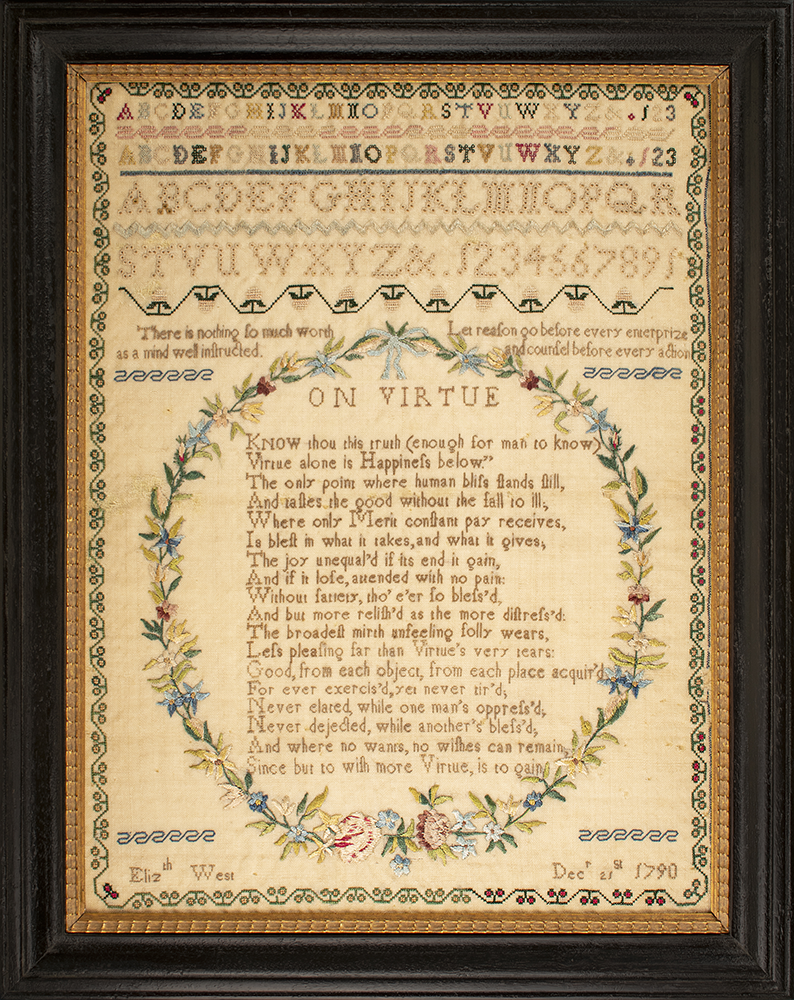 ABCDEFGHIJKLMNOPQRSTVUWXYZ&.123
ABCDEFGHIJKLMNOPQRSTVUWXYZ&.123
ABCDEFGHIJKLMNOPQR
STVUWXYZ&.1234567891
There is nothing ſo much worth
as a mind well inſtructed.
Let reaſon go before every enterprize
and counſel before every action
ON VIRTUE
KNOW thou this truth (enough for man to know)
Virtue alone is Happineſs below."
The only point where human bliſs ſtands ſtill,
And taſtes the good without the fall to ill;
Where only Merit conſtant pay receives,
Is bleſt in what it takes, and what it gives;
The joy unequal'd if its end it gain,
And if it loſe, attended with no pain:
Without ſatiety, tho' e'er ſo bleſs'd,
And but more reliſh'd as the more diſtreſs'd:
The broadeſt mirth unfeeling folly wears,
Leſs pleaſing far than Virtue's very tears:
Good, from each object, from each place acquir'd
For ever exercis'd, yet never tir'd;
Never elated, while one man's oppreſs'd;
Never dejected, while another's bleſs'd;
And where no wants, no wiſhes can remain,
Since but to wiſh more Virtue, is to gain
Eliz th West
Dec r 21 st 1790